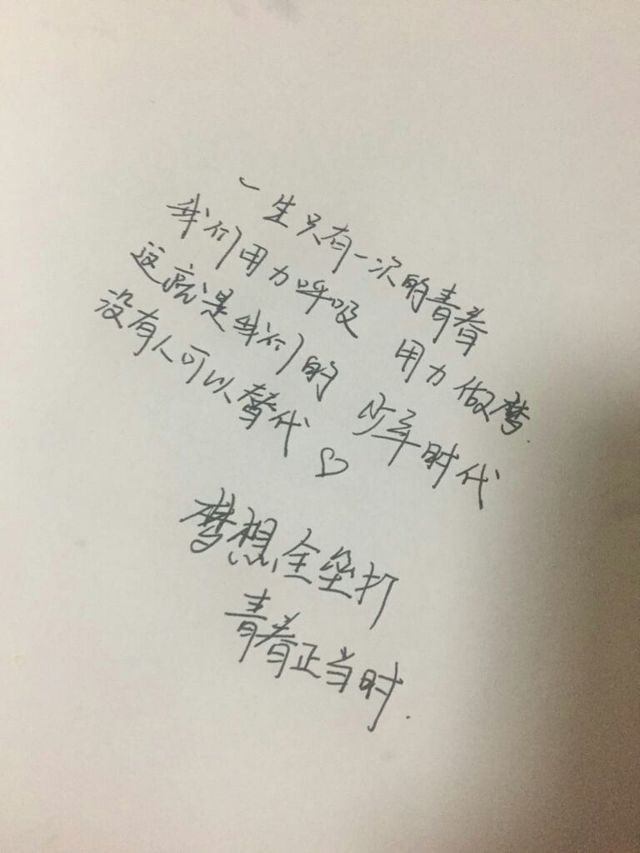 一生只有一次的青春
我们用力呼吸 用力做梦.
这就是我们的 少年时代
没有人可以替代♡
梦想全垒打
青春正当时.